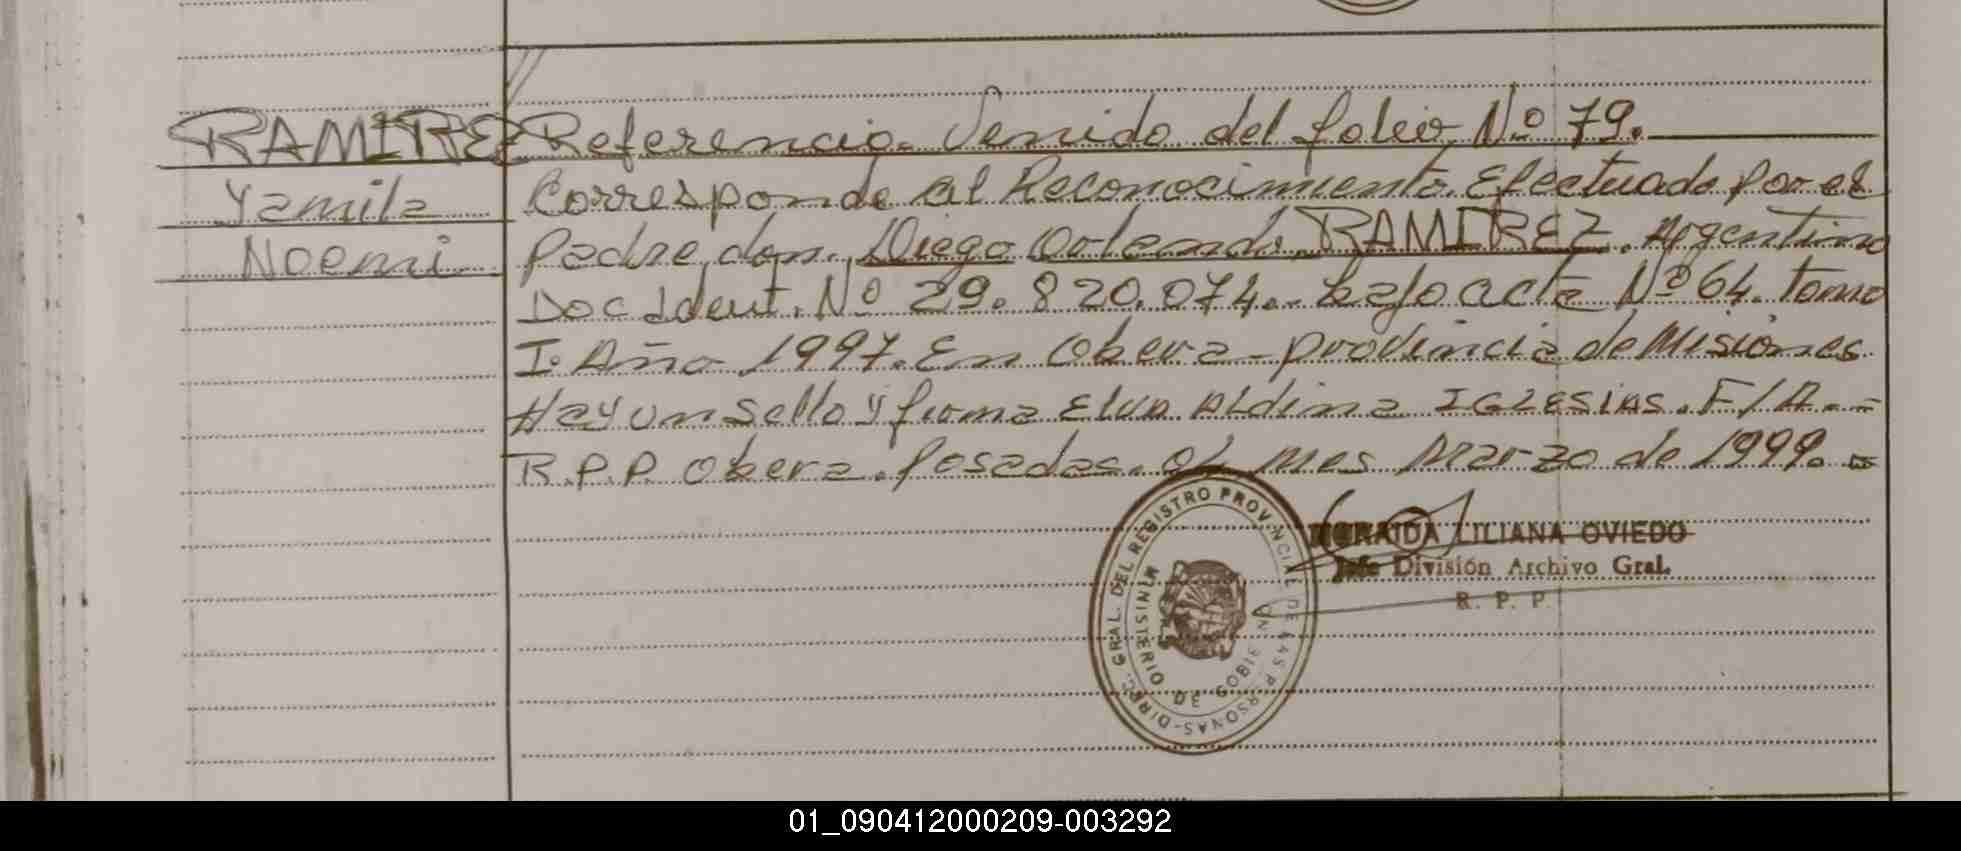 RAMIRE
Yamila
Noemi
Referencia. Venido del folio Nº 79.
Corresponde al Reconocimiento. Efectuado por el
padre don. Diego Orlando RAMIREZ. Argentino
Doc Ident. Nº 29.820.074.- bajo acta Nº 64. tomo
I. Año 1997. En Obera - provincia de Misiones.
Hay un sello y firma Elva Aldina IGLESIAS. F/A.-
R.P.P. Obera. Posadas. 01 mes Marzo de 1999.-
DIREC. GRAL. DEL REGISTRO PROVINCIAL DE LAS PERSONAS-
MINISTERIO DE GOBIERNO
LILIANA OVIEDO
Jefe División Archivo Gral.
R. P. P.
01_090412000209-003292